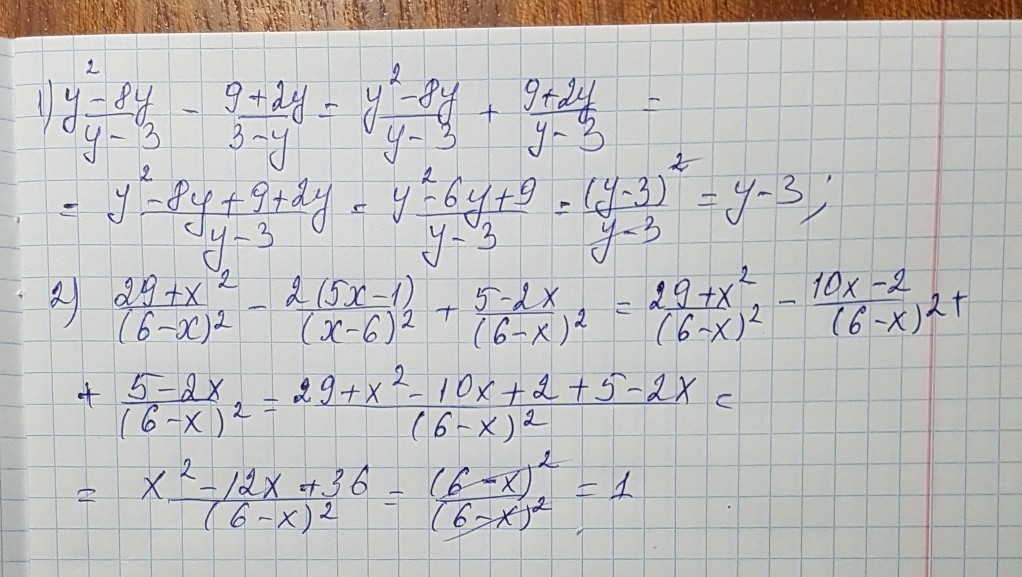 1) (y² - 8y)/(y - 3) - (9 + 2y)/(3 - y) = (y² - 8y)/(y - 3) + (9 + 2y)/(y - 3) =
= (y² - 8y + 9 + 2y)/(y - 3) = (y² - 6y + 9)/(y - 3) = (y - 3)²/(y - 3) = y - 3;
2) (29 + x²)/(6 - x)² - 2(5x - 1)/(x - 6)² + (5 - 2x)/(6 - x)² = (29 + x²)/(6 - x)² - (10x - 2)/(6 - x)² +
+ (5 - 2x)/(6 - x)² = (29 + x² - 10x + 2 + 5 - 2x)/(6 - x)² =
= (x² - 12x + 36)/(6 - x)² = (6 - x)²/(6 - x)² = 1